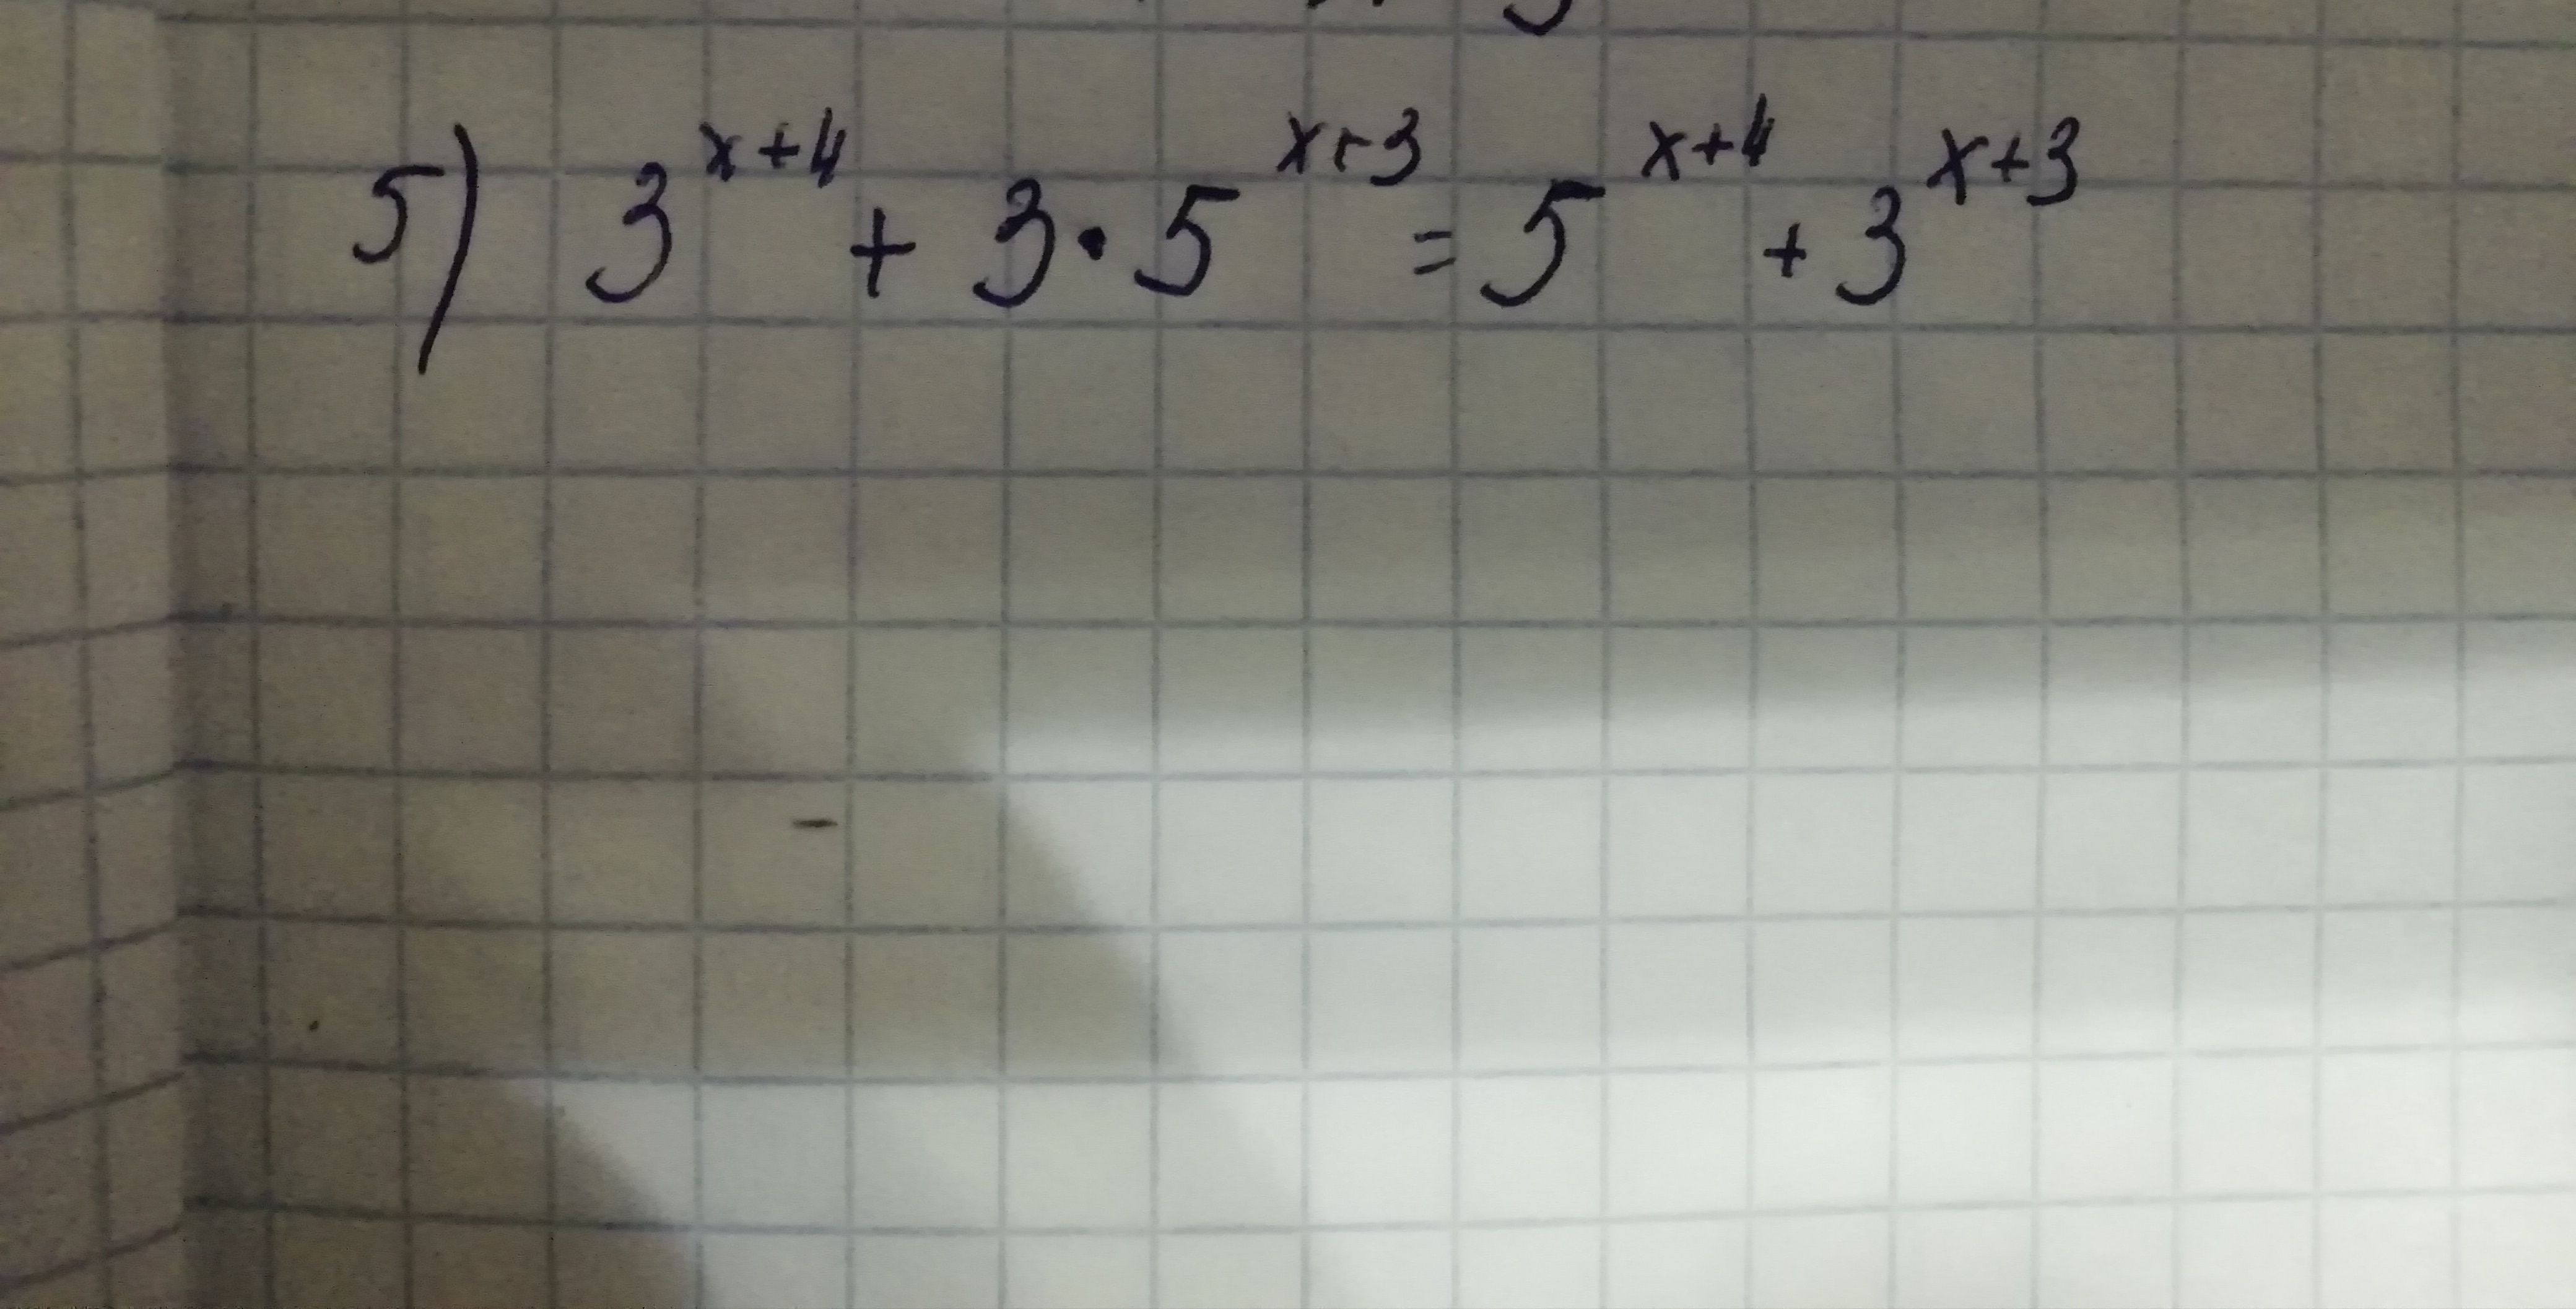 5) 3^{x+4} + 3 · 5^{x+3} = 5^{x+4} + 3^{x+3}